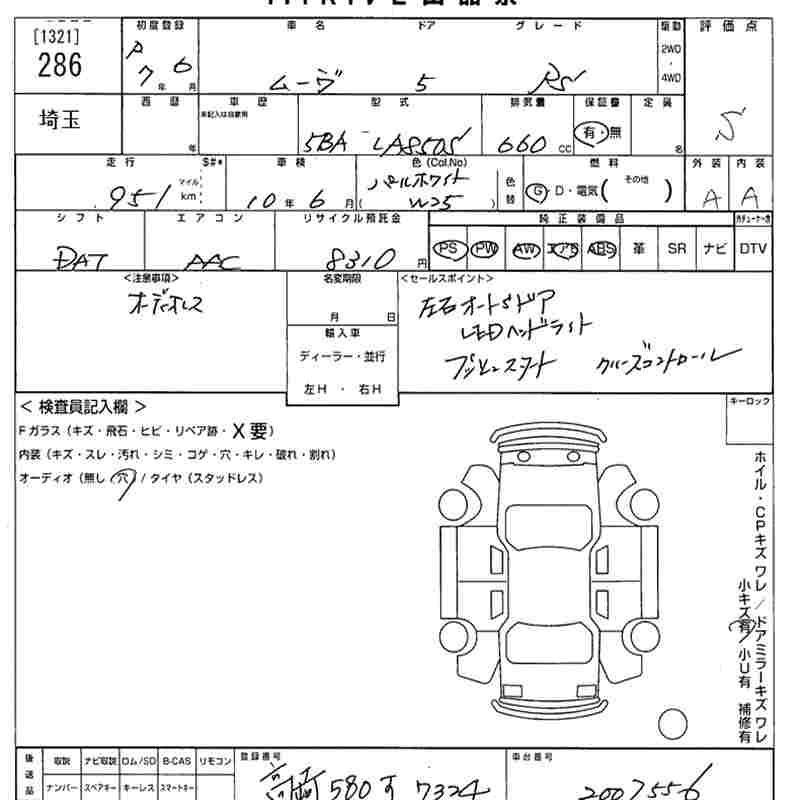 [1321]
286
初度登録
R
7年 6月
車名
ムーヴ
ドア
5
グレード
RS
駆動
2WD
・
4WD
評価点
S
埼玉
西暦
年
車歴
未記入は自家用
型式
5BA-LA850S
排気量
660 CC
保証書
有・無
定員
名
走行
$#*
951
マイル
km
車検
10年 6月
色(Col.No)
パールホワイト
( W25 )
色替
燃料
G・D・電気 (その他)
外装
A
内装
A
シフト
DAT
エアコン
AAC
リサイクル預託金
8310 円
純正装備品
PS PW AW エアB ABS 革 SR ナビ DTV
<注意事項>
オーディオレス
名変期限
月 日
輸入車
ディーラー・並行
左H ・ 右H
<セールスポイント>
左右オートSドア
LEDヘッドライト
プッシュスタート クルーズコントロール
< 検査員記入欄 >
Fガラス(キズ・飛石・ヒビ・リペア跡・X要)
内装(キズ・スレ・汚れ・シミ・コゲ・穴・キレ・破れ・割れ)
オーディオ(無し 穴)/タイヤ(スタッドレス)
キーロック
ホイル・CPキズ ワレ / ドアミラーキズ ワレ
小キズ有 / 小U有 補修有
後送品
取説 ナビ取説 ロム/SD B-CAS リモコン
ナンバー スペアキー キーレス スマートキー
登録番号
高崎 580 す 7324
車台番号
2007556